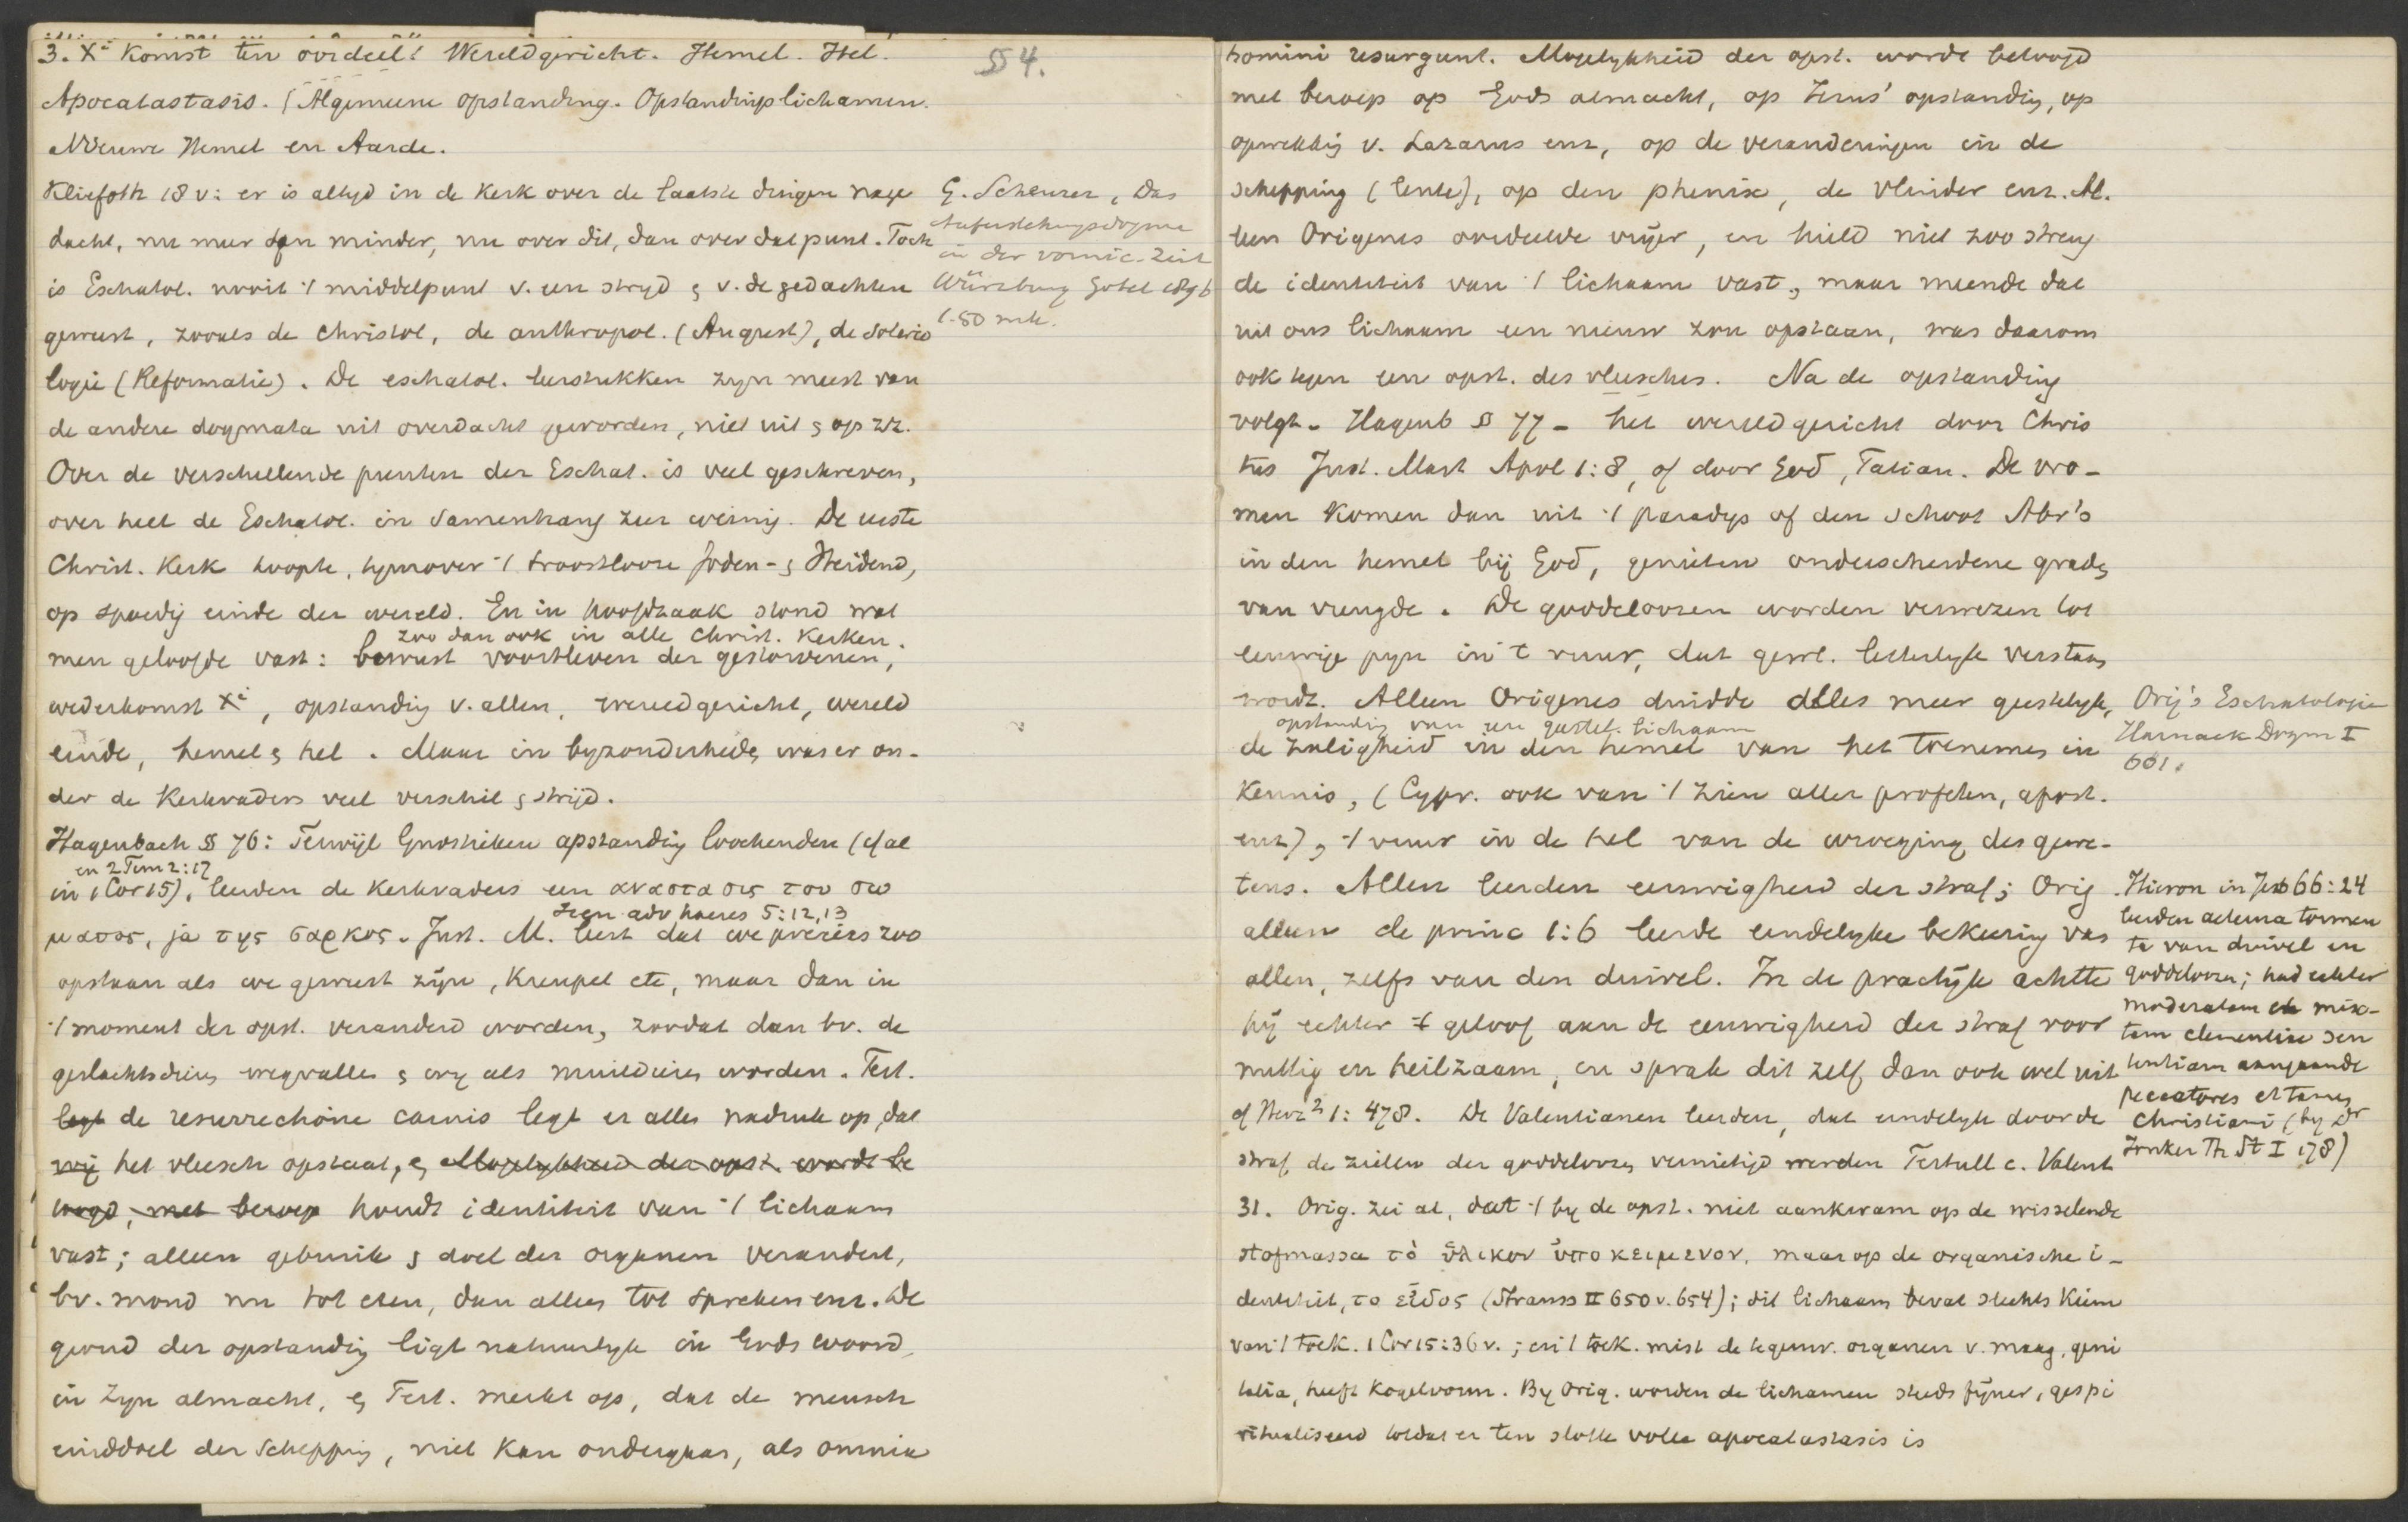 3. Xi Komst ten oordeel! Wereldgericht. Hemel. Hel.
Apocatastasis. (Algemeene opstanding. Opstandings lichamen.
Nieuwe Hemel en Aarde.
§ 4.
Kliefoth 18 v: er is altyd in de Kerk over de laatste dingen nage
dacht, nu meer dan minder, nu over dit, dan over dat punt. Toch
is Eschatol. nooit 't middelpunt v. een stryd & v. de gedachten
geweest, zooals de Christol, de anthropol. (August), de soterio
logie (Reformatie). De eschatol. leerstukken zyn meest van
de andere dogmata uit overdacht geworden, niet uit & op zz.
Over de verschillende punten der Eschat. is veel geschreven,
over heel de Eschatol. in samenhang zeer weinig. De eerste
Christ. Kerk hoopte, tegenover 't troostelooze Joden- & Heidend,
op spoedig einde der wereld. En in hoofdzaak stond wat
zoo dan ook in alle Christ. Kerken.
men geloofde vast: bewust voortleven der gestorvenen,
wederkomst Xi, opstanding v. allen, wereldgericht, wereld
einde, hemel & hel. Maar in byzonderheden was er on-
der de Kerkvaders veel verschil & strijd.
G. Scheurer, Das
Auferstehungsdogma
in der vornic. Zeit
Würzburg Göbel 1896
1.80 mk.
Hagenbach § 76: Terwijl Gnostieken opstanding loochenden (cf al
en 2 Tim 2:17
in 1 Cor 15), leerden de Kerkvaders een αναστασις του σω
Iren adv haeres 5:12,13
ματος, ja της σαρκος. Just. M. leert dat we precies zoo
opstaan als we geweest zijn, Kreupel etc, maar dan in
't moment der opst. veranderd worden, zoodat dan bv. de
geslachtsdriften wegvallen & wy als muildieren worden. Tert.
legt de resurrectione carnis legt er alles nadruk op, dat
wij het vleesch opstaat, & Mogelykheid der opst. wordt be
toogd, met beroep houdt identiteit van 't lichaam
vast; alleen gebruik & doel der organen verandert,
bv. mond nu tot eten, dan alleen tot spreken enz. De
grond der opstanding ligt natuurlyk in Gods woord,
in Zyn almacht, & Tert. merkt op, dat de mensch
einddoel der Schepping, niet kan ondergaan, als omnia
homini resurgunt. Mogelykheid der opst. wordt betoogd
met beroep op Gods almacht, op Jezus' opstanding, op
opwekking v. Lazarus enz, op de veranderingen in de
schepping (lente), op den phenix, de vlinder enz. Al.
leen Origenes oordeelde vrijer, en hield niet zoo streng
de identiteit van 't lichaam vast, maar meende dat
uit ons lichaam een nieuw zou opstaan, was daarom
ook tegen een opst. des vleesches. Na de opstanding
volgt - Hagenb § 77 - het wereldgericht door Chris
tus Just. Mart Apol 1:8, of door God, Tatian. De vro-
men komen dan uit 't paradys of den schoot Abr's
in den hemel bij God, genieten onderscheidene graden
van vreugde. De goddeloozen worden verwezen tot
eeuwige pyn in 't vuur, dat gewl. letterlyk verstaan
wordt. Alleen Origenes duidde alles meer geestelyk,
opstanding van een geestel. lichaam
de zaligheid in den hemel van het toenemen in
Kennis, (Cypr. ook van 't zien aller profeten, apost.
enz), 't vuur in de hel van de wroeging des gewe-
tens. Allen leerden eeuwigheid der straf; Orig
alleen de princ 1:6 leerde eindelyke bekeering van
allen, zelfs van den duivel. In de practijk achtte
hij echter 't geloof aan de eeuwigheid der straf voor
nuttig en heilzaam, en sprak dit zelf dan ook wel uit
cf Herz² 1: 478. De Valentianen leerden, dat eindelyk door de
straf de zielen der goddeloozen vernietigd werden Tertull c. Valent
31. Orig. zei al, dat 't by de opst. niet aankwam op de wisselende
stofmassa το ὑλικον ὑποκειμενον, maar op de organische i-
dentiteit, το εἰδος (Strauss II 650 v. 654); dit lichaam bevat slechts Kiem
van 't toek. 1 Cor 15:36 v.; en 't toek. mist de tegenw. organen v. maag, geni
talia, heeft Kogelvorm. By Orig. worden de lichamen steeds fijner, gespi
ritualiseerd totdat er ten slotte volle apocatastasis is
Orig's Eschatologie
Harnack Dogm I
661.
Hieron in Jes 66:24
leerden aeterna tormen
ta van duivel en
goddeloozen; had echter
moderatam et mix-
tam clementiae sen
tentiam aangaande
peccatores et tamen
Christiani (by Dr
Jonker Th St I 178)